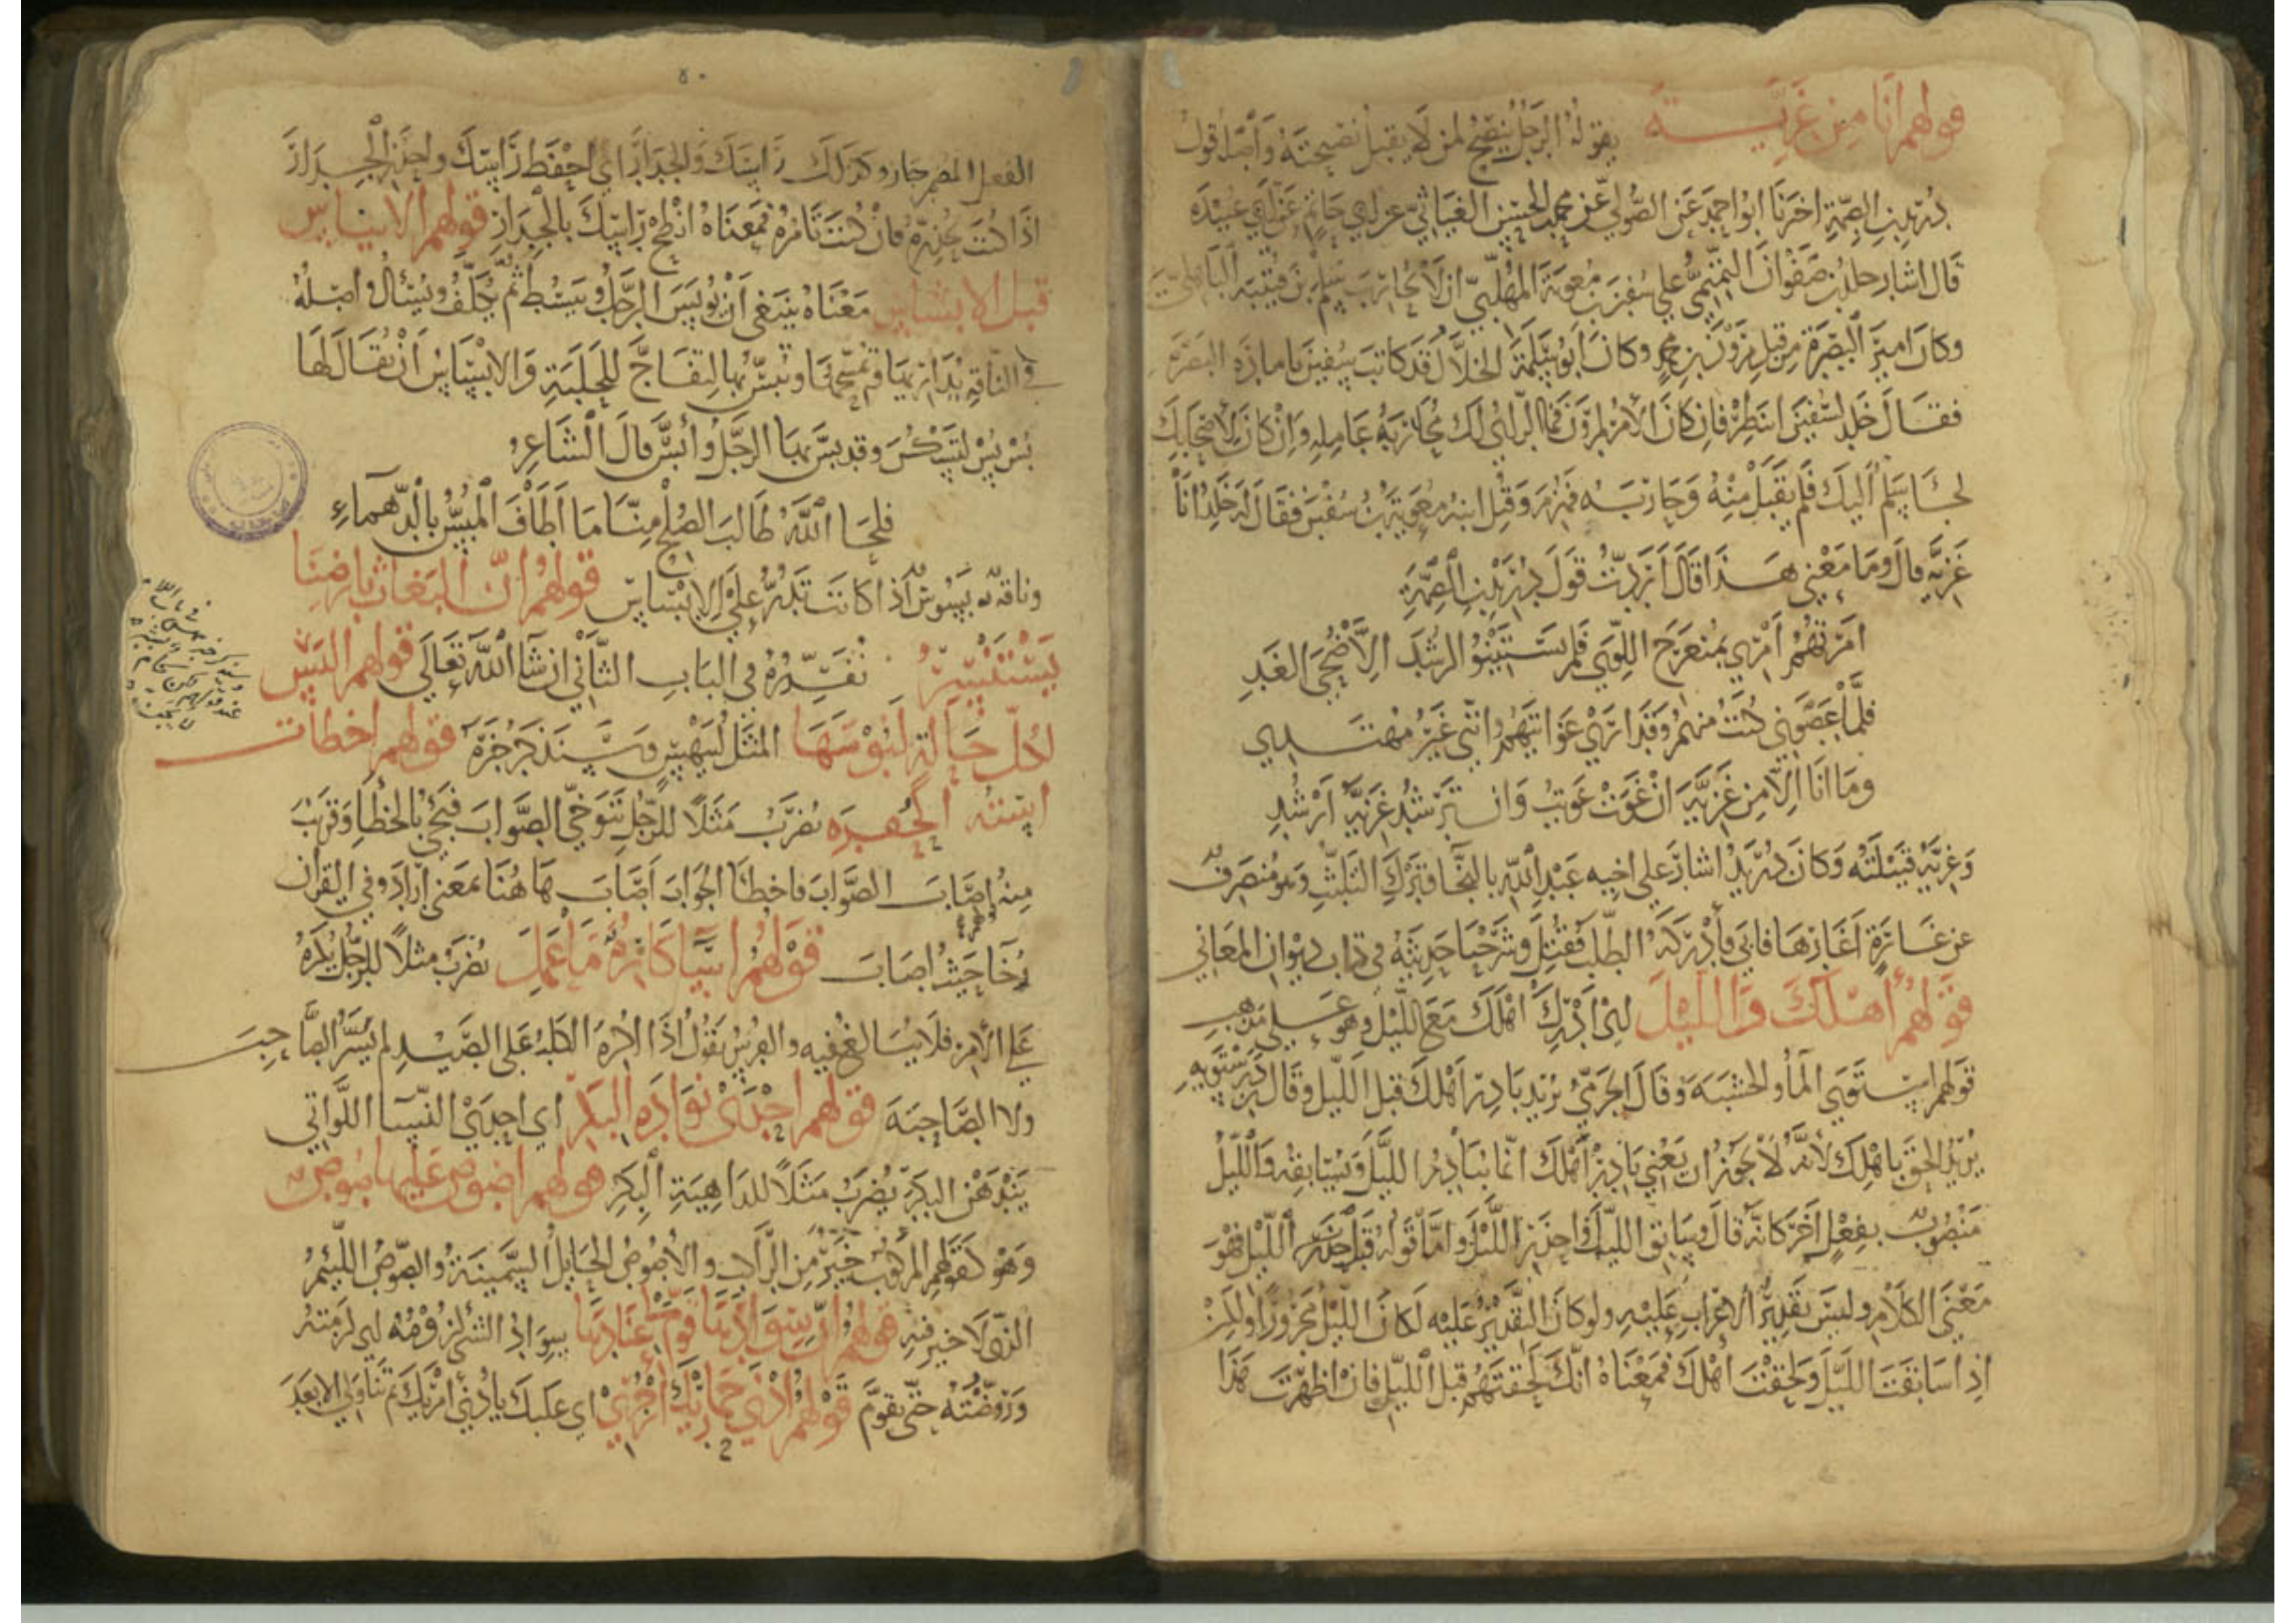 قولهم أنا من غزية يقوله الرجل ينصح لمن لا يقبل نصيحته وأصله قول
دريد بن الصمة اخبرنا ابو احمد عن الصولي عن محمد بن الحسن الغياثي عن ابي حاتم عن ابي عبيدة
قال اشار خلد بن صفوان التميمي على سفين بن معوية المهلبي ان لا يحارب سلم بن قتيبة الباهلي
وكان امير البصرة من قبل مرون بن محمد وكان ابو سلمة الخلال قد كاتب سفين بامارة البصرة
فقال خلد لسفين انتظر فان كان الأمر لمرون فما الرأي لك محاربة عامله وإن كان لأصحابك
لجا سلم اليك فلم يقبل منه وحاربه فهزم وقتل ابنه معوية بن سفين فقال له خلد انا
غزية قال وما معنى هذا قال أردت قول دريد بن الصمة
امرتهم امري بمنعرج اللوى فلم يستبينوا الرشد الا ضحى الغد
فلما عصوني كنت منهم وقد ارى غوايتهم وانني غير مهتدي
وما انا الا من غزية ان غوت غويت وان ترشد غزية ارشد
وغزية قبيلته وكان دريد اشار على اخيه عبد الله بالنجا وترك التلبث وهو منصرف
عن غارة اغارها فابى فأدركه الطلب فقتل وشرحنا حديثه في كتاب ديوان المعاني
قولهم أهلك والليل اي أدرك أهلك مع الليل وهو على مذهب
قولهم استوى الماء والخشبة وقال الجرمي يريد بادر أهلك قبل الليل وقال ابن درستويه
يريد الحق باهلك لأنه لا يجوز ان يعني بادر أهلك انما يبادر الليل ويسابقه والليل
منصوب بفعل آخر كانه قال وسابق الليل واحذر الليل واما قوله قبل الليل فهو
معنى الكلام وليس تقدير الاعراب عليه ولو كان التقدير عليه لكان الليل مجرورا ولكن
اذا سابقت الليل ولحقت أهلك فمعناه انك لحقتهم قبل الليل فان اظهرت هذا
الفعل المضمر جاز وكذلك رأسك والجدار اي احفظ رأسك واحذر الجدار
اذا كنت تحذره فان كنت تأمره فمعناه انطح رأسك بالجدار قولهم الايناس
قبل الابساس معناه ينبغي أن يونس الرجل ويبسط ثم يكلف ويسأل وأصله
في الناقة يدارئها وتمسحها وبس بها لتفاج للحلبة والابساس أن يقال لها
بس بس لتسكن وقد بس بها الرجل وأبس قال الشاعر
فلحا الله طالب الصلح منا ما اطاف المبس بالدهماء
وناقة بسوس اذا كانت تدر على الابساس قولهم ان البغاث بارضنا
يستنسر نفسره في الباب الثاني ان شاء الله تعالى قولهم البس
لكل حالة لبوسها المثل لبيهس وسنذكر خبره قولهم اخطأت
استه الحفرة يضرب مثلا للرجل يتوخى الصواب فيجئ بالخطأ وقريب
منه اصاب الصواب فاخطأ الجواب أصاب هاهنا بمعنى أراد وفي القرآن
رخاء حيث اصاب قولهم اساء كاره ما عمل يضرب مثلا للرجل يكره
على الأمر فلا يبالغ فيه والفرس يقول اذا اكره الكلب على الصيد لم يسر الصاحب
ولا الصاحبة قولهم احدى نواده البكر اي احدى النساء اللواتي
يندهن البكر يضرب مثلا للداهية البكر قولهم اصوص عليها صوص
وهو كقولهم المركوب خير من الراكب والأصوص الحايل السمينة والصوص اللئيم
الذي لا خير فيه قولهم
وروضته حتى تقوم قولهم ادنى حماريك ازجري اي عليك بادنى امريك ثم تناولي الابعد